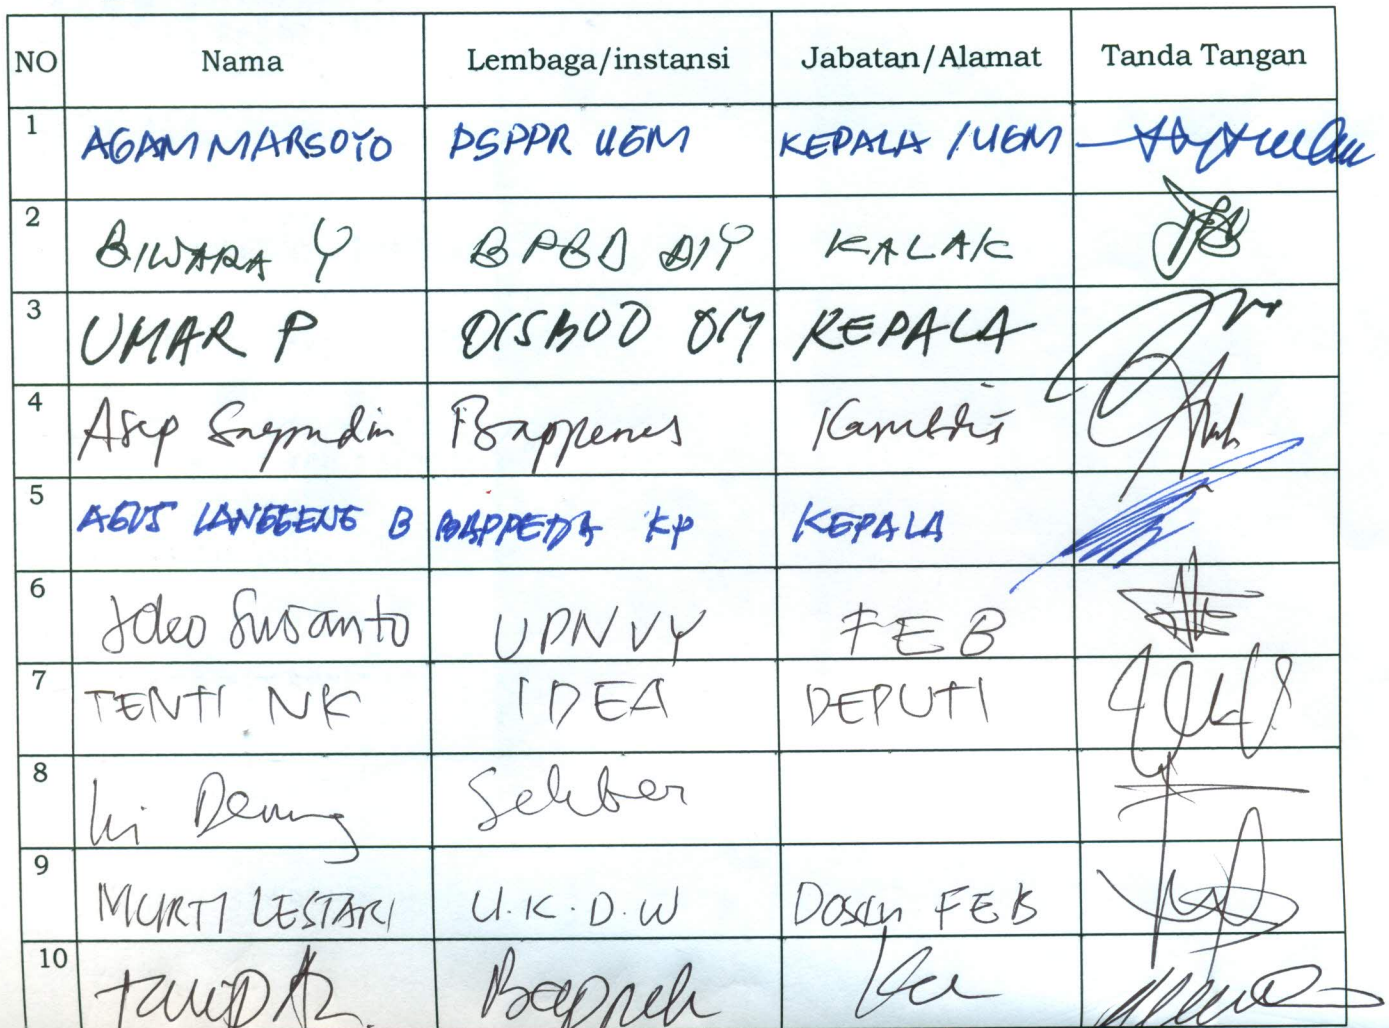 NO Nama Lembaga/instansi Jabatan/Alamat Tanda Tangan
1 AGAM MARSOYO PSPPR UGM KEPALA / UGM
2 BIWARA Y BPBD DIY KALAK
3 UMAR P DISBUD DIY KEPALA
4 Asep Saepudin Bappenas
5 AGUS LANGGENG B BAPPEDA KP KEPALA
6 Joko Susanto UPNVY FEB
7 TENTI NK IDEA DEPUTI
8 Sekber
9 MURTI LESTARI U.K.D.W Dosen FEB
10